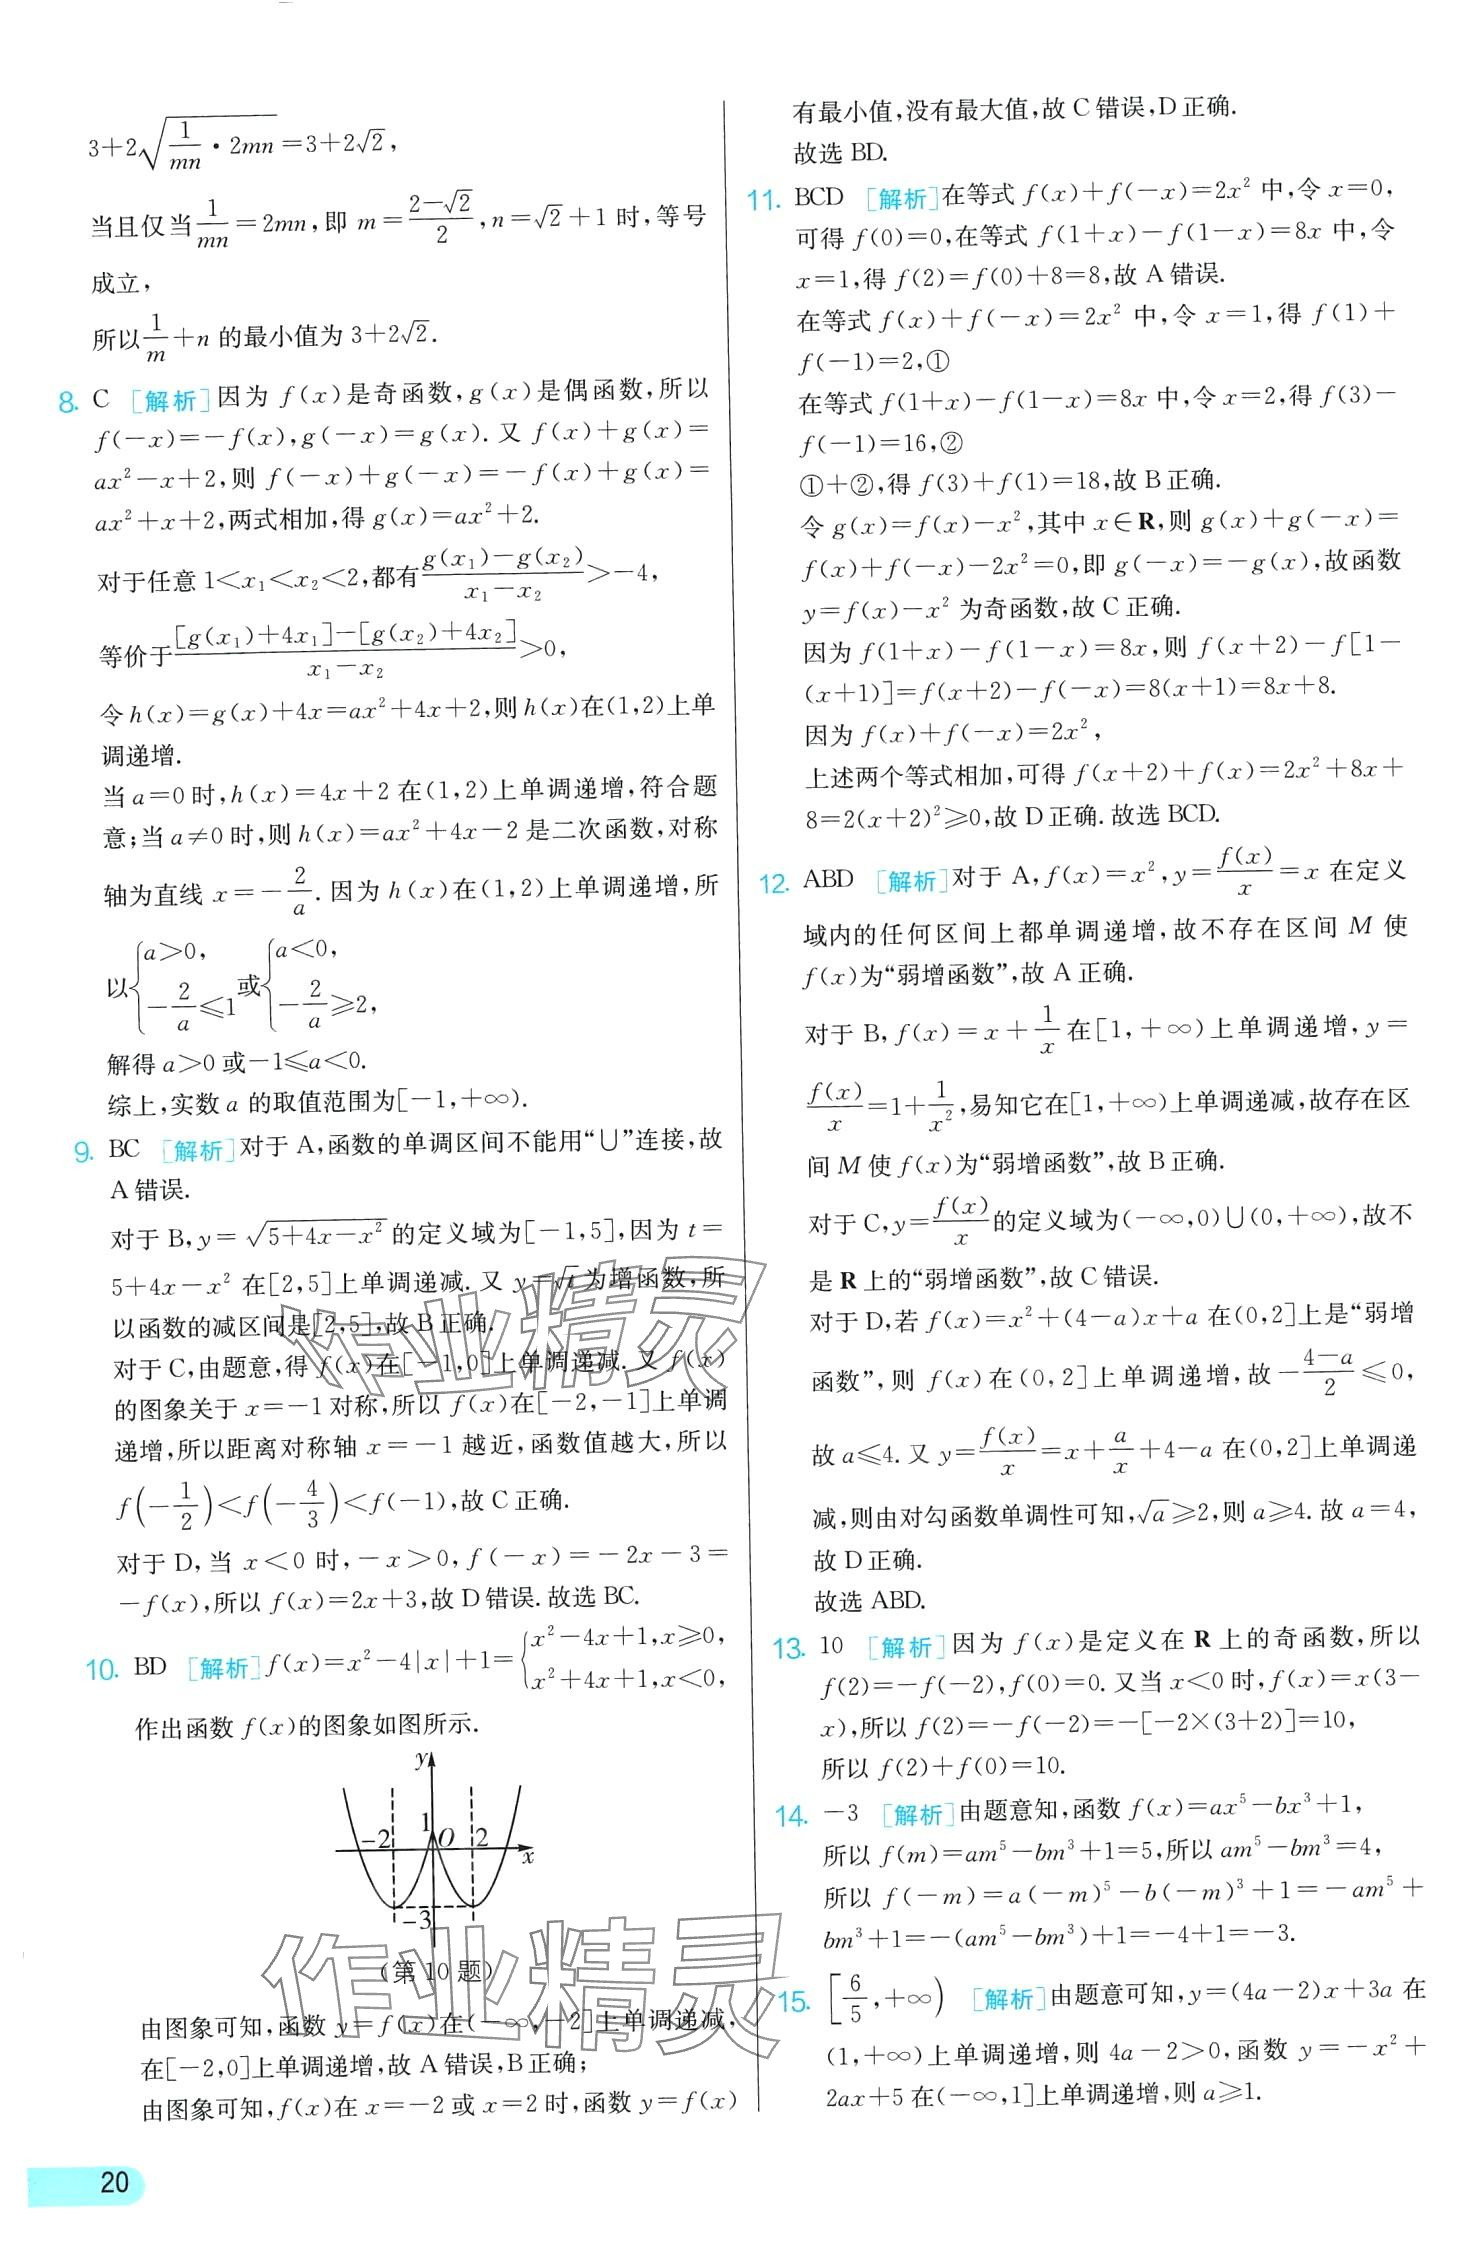 3+2√(1/mn · 2mn)=3+2√2,
当且仅当1/mn=2mn,即 m=(2-√2)/2,n=√2+1 时,等号
成立,
所以1/m+n 的最小值为 3+2√2.
8. C [解析]因为 f(x)是奇函数,g(x)是偶函数,所以
f(-x)=-f(x),g(-x)=g(x).又 f(x)+g(x)=
ax²-x+2,则 f(-x)+g(-x)=-f(x)+g(x)=
ax²+x+2,两式相加,得 g(x)=ax²+2.
对于任意 1<x₁<x₂<2,都有(g(x₁)-g(x₂))/(x₁-x₂)>-4,
等价于([g(x₁)+4x₁]-[g(x₂)+4x₂])/(x₁-x₂)>0,
令 h(x)=g(x)+4x=ax²+4x+2,则 h(x)在(1,2)上单
调递增.
当 a=0 时,h(x)=4x+2 在(1,2)上单调递增,符合题
意;当 a≠0 时,则 h(x)=ax²+4x-2 是二次函数,对称
轴为直线 x=-2/a.因为 h(x)在(1,2)上单调递增,所
以{a>0, -2/a≤1 或{a<0, -2/a≥2,
解得 a>0 或-1≤a<0.
综上,实数 a 的取值范围为[-1,+∞).
9. BC [解析]对于 A,函数的单调区间不能用“∪”连接,故
A 错误.
对于 B,y=√(5+4x-x²) 的定义域为[-1,5],因为 t=
5+4x-x² 在[2,5]上单调递减.又 y=√t 为增函数,所
以函数的减区间是[2,5],故 B 正确.
对于 C,由题意,得 f(x)在[-1,0]上单调递减.又 f(x)
的图象关于 x=-1 对称,所以 f(x)在[-2,-1]上单调
递增,所以距离对称轴 x=-1 越近,函数值越大,所以
f(-1/2)<f(-4/3)<f(-1),故 C 正确.
对于 D,当 x<0 时,-x>0,f(-x)=-2x-3=
-f(x),所以 f(x)=2x+3,故 D 错误.故选 BC.
10. BD [解析]f(x)=x²-4|x|+1={x²-4x+1,x≥0, x²+4x+1,x<0,
作出函数 f(x)的图象如图所示.
y
1
-2
O
2
x
-3
(第 10 题)
由图象可知,函数 y=f(x)在(-∞,-2]上单调递减,
在[-2,0]上单调递增,故 A 错误,B 正确;
由图象可知,f(x)在 x=-2 或 x=2 时,函数 y=f(x)
有最小值,没有最大值,故 C 错误,D 正确.
故选 BD.
11. BCD [解析]在等式 f(x)+f(-x)=2x² 中,令 x=0,
可得 f(0)=0,在等式 f(1+x)-f(1-x)=8x 中,令
x=1,得 f(2)=f(0)+8=8,故 A 错误.
在等式 f(x)+f(-x)=2x² 中,令 x=1,得 f(1)+
f(-1)=2,①
在等式 f(1+x)-f(1-x)=8x 中,令 x=2,得 f(3)-
f(-1)=16,②
①+②,得 f(3)+f(1)=18,故 B 正确.
令 g(x)=f(x)-x²,其中 x∈R,则 g(x)+g(-x)=
f(x)+f(-x)-2x²=0,即 g(-x)=-g(x),故函数
y=f(x)-x² 为奇函数,故 C 正确.
因为 f(1+x)-f(1-x)=8x,则 f(x+2)-f[1-
(x+1)]=f(x+2)-f(-x)=8(x+1)=8x+8.
因为 f(x)+f(-x)=2x²,
上述两个等式相加,可得 f(x+2)+f(x)=2x²+8x+
8=2(x+2)²≥0,故 D 正确.故选 BCD.
12. ABD [解析]对于 A,f(x)=x²,y=f(x)/x=x 在定义
域内的任何区间上都单调递增,故不存在区间 M 使
f(x)为“弱增函数”,故 A 正确.
对于 B,f(x)=x+1/x 在[1,+∞)上单调递增,y=
f(x)/x=1+1/x²,易知它在[1,+∞)上单调递减,故存在区
间 M 使 f(x)为“弱增函数”,故 B 正确.
对于 C,y=f(x)/x的定义域为(-∞,0)∪(0,+∞),故不
是 R 上的“弱增函数”,故 C 错误.
对于 D,若 f(x)=x²+(4-a)x+a 在(0,2]上是“弱增
函数”,则 f(x)在(0,2]上单调递增,故-(4-a)/2≤0,
故 a≤4.又 y=f(x)/x=x+a/x+4-a 在(0,2]上单调递
减,则由对勾函数单调性可知,√a≥2,则 a≥4.故 a=4,
故 D 正确.
故选 ABD.
13. 10 [解析]因为 f(x)是定义在 R 上的奇函数,所以
f(2)=-f(-2),f(0)=0.又当 x<0 时,f(x)=x(3-
x),所以 f(2)=-f(-2)=-[-2×(3+2)]=10,
所以 f(2)+f(0)=10.
14. -3 [解析]由题意知,函数 f(x)=ax⁵-bx³+1,
所以 f(m)=am⁵-bm³+1=5,所以 am⁵-bm³=4,
所以 f(-m)=a(-m)⁵-b(-m)³+1=-am⁵+
bm³+1=-(am⁵-bm³)+1=-4+1=-3.
15. [6/5,+∞) [解析]由题意可知,y=(4a-2)x+3a 在
(1,+∞)上单调递增,则 4a-2>0,函数 y=-x²+
2ax+5 在(-∞,1]上单调递增,则 a≥1.
20
作业精灵
作业精灵